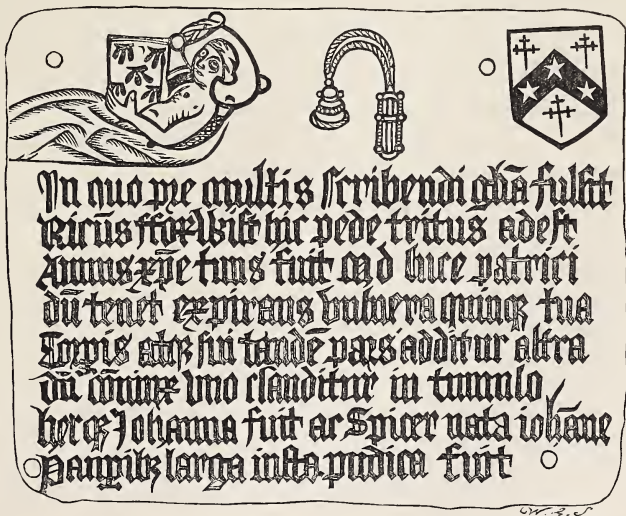 In quo pre multis scribendi glia fulsit
Ricūs ffoxwist hic pede tritus adest
Annus xpe tuus fuit M d luce patrici
dū tenet expirans vulnera quinqꝫ tua
Corpis atqꝫ sui tandē pars additur altra
dū coniux uno clauditur in tumulo
hecqꝫ Johanna fuit ac Spicer nata iohāne
Paupibꝫ larga iusta pudica fuit